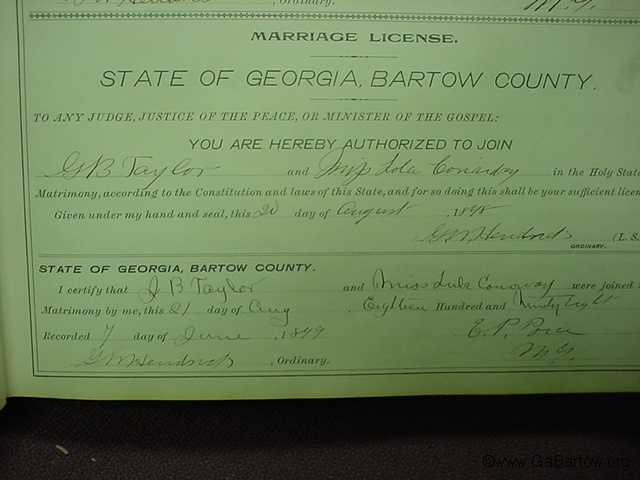 , Ordinary.
MARRIAGE LICENSE.
STATE OF GEORGIA, BARTOW COUNTY.
TO ANY JUDGE, JUSTICE OF THE PEACE, OR MINISTER OF THE GOSPEL:
YOU ARE HEREBY AUTHORIZED TO JOIN
G B Taylor and Miss Lola in the Holy State
Matrimony, according to the Constitution and laws of this State, and for so doing this shall be your sufficient licen
Given under my hand and seal, this 20 day of August , 1898
G W Hendricks (L. S.
ORDINARY.
STATE OF GEORGIA, BARTOW COUNTY.
I certify that J B Taylor and Miss Lula Conoway were joined
Matrimony by me, this 21 day of Aug , Eighteen Hundred and Ninty Eight
Recorded 7 day of June , 1899 E. P.
G W Hendricks , Ordinary. M. G.
©www.GaBartow.org